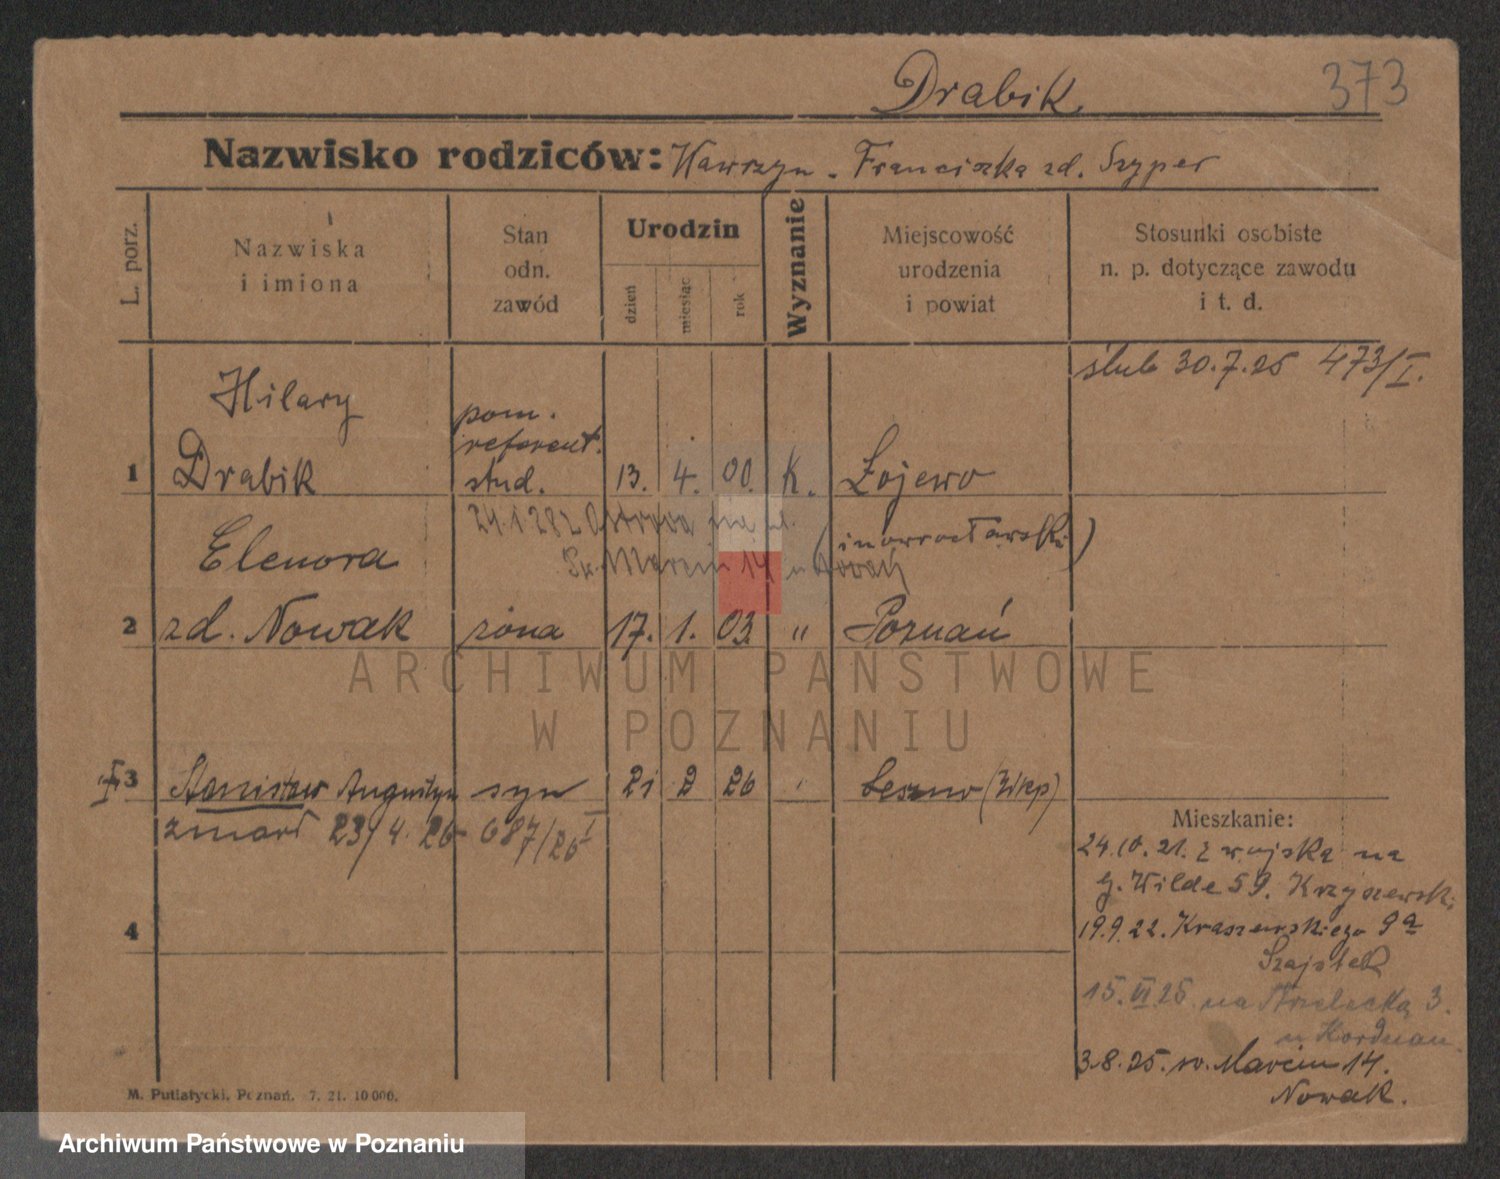 Drabik 373
Nazwisko rodziców: Wawrzyn - Franciszka zd. Szyper
L. porz.
Nazwiska i imiona
Stan odn. zawód
Urodzin
dzień miesiąc rok
Wyznanie
Miejscowość urodzenia i powiat
Stosunki osobiste n. p. dotyczące zawodu i t. d.
ślub 30.7.25 473/I.
Hilary pom.
referent.
1 Drabik stud. 13. 4. 00. K. Łojewo
24.1.28 z Ostrowa na ul.
(inowrocławski)
Elenora Św. Marcin 14
2 zd. Nowak żona 17. 1. 03. " Poznań
ARCHIWUM PAŃSTWOWE
W POZNANIU
I 3 Stanisław Augustyn syn 21 2 26 Leszno (Wlkp)
zmarł 23/4.26 687/26 I
Mieszkanie:
24.10.21. z wojska na
g. Wilde 59. Krzyżewski
4
19.9.22. Kraszewskiego 9a
Szajstek
15.VI.25 na Strzelecką 3.
u Korduan.
3.8.25. św. Marcin 14.
Nowak.
M. Putiatycki, Poznań. 7. 21. 10 000.
Archiwum Państwowe w Poznaniu